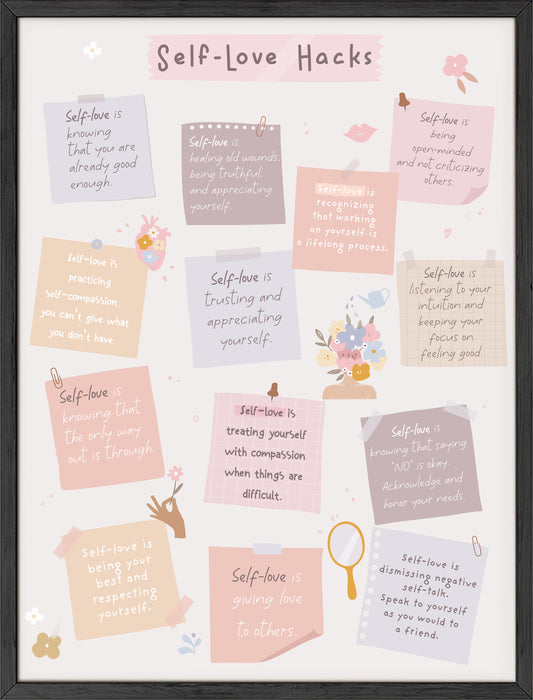 Self-Love Hacks
Self-love is
knowing
that you are
already good
enough.
Self-love is
healing old wounds,
being truthful,
and appreciating
yourself.
Self-love is
recognizing
that working
on yourself is
a lifelong process.
Self-love is
being
open-minded
and not criticizing
others.
Self-love is
practicing
self-compassion,
you can't give what
you don't have.
Self-love is
trusting and
appreciating
yourself.
Self-love is
listening to your
intuition and
keeping your
focus on
feeling good.
Self-love is
knowing that
the only way
out is through.
Self-love is
treating yourself
with compassion
when things are
difficult.
Self-love is
knowing that saying
"NO" is okay.
Acknowledge and
honor your needs.
Self-love is
being your
best and
respecting
yourself.
Self-love is
giving love
to others.
Self-love is
dismissing negative
self-talk.
Speak to yourself
as you would to
a friend.